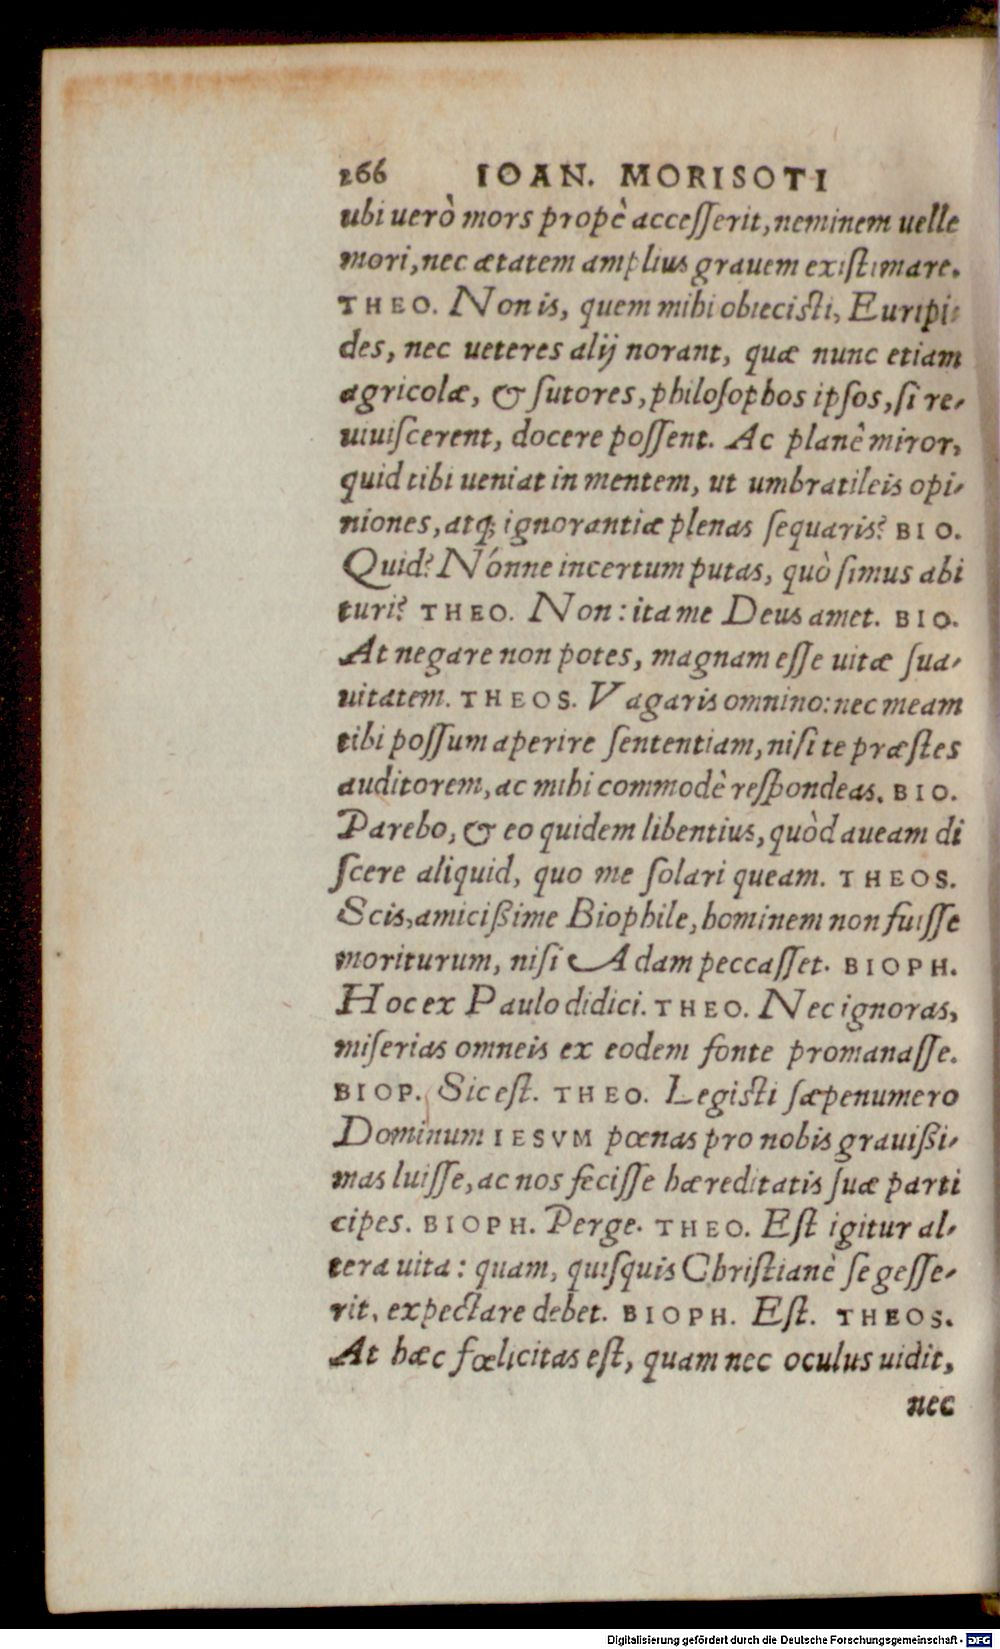 266 IOAN. MORISOTI
ubi uerò mors propè accesserit, neminem uelle
mori, nec ætatem amplius grauem existimare.
THEO. Non is, quem mihi obiecisti, Euripi-
des, nec ueteres alij norant, quæ nunc etiam
agricolæ, & sutores, philosophos ipsos, si re-
uiuiscerent, docere possent. Ac planè miror,
quid tibi ueniat in mentem, ut umbratileis opi-
niones, atq; ignorantiæ plenas sequaris? BIO.
Quid? Nónne incertum putas, quò simus abi
turi? THEO. Non: ita me Deus amet. BIO.
At negare non potes, magnam esse uitæ sua-
uitatem. THEOS. Vagaris omnino: nec meam
tibi possum aperire sententiam, nisi te præstes
auditorem, ac mihi commodè respondeas. BIO.
Parebo, & eo quidem libentius, quòd aueam di
scere aliquid, quo me solari queam. THEOS.
Scis, amicißime Biophile, hominem non fuisse
moriturum, nisi Adam peccasset. BIOPH.
Hoc ex Paulo didici. THEO. Nec ignoras,
miserias omneis ex eodem fonte promanasse.
BIOP. Sic est. THEO. Legisti sæpenumero
Dominum IESVM pœnas pro nobis grauißi-
mas luisse, ac nos fecisse hæreditatis suæ parti
cipes. BIOPH. Perge. THEO. Est igitur al-
tera uita: quam, quisquis Christianè se gesse-
rit, expectare debet. BIOPH. Est. THEOS.
At hæc fœlicitas est, quam nec oculus uidit,
nec
Digitalisierung gefördert durch die Deutsche Forschungsgemeinschaft - DFG